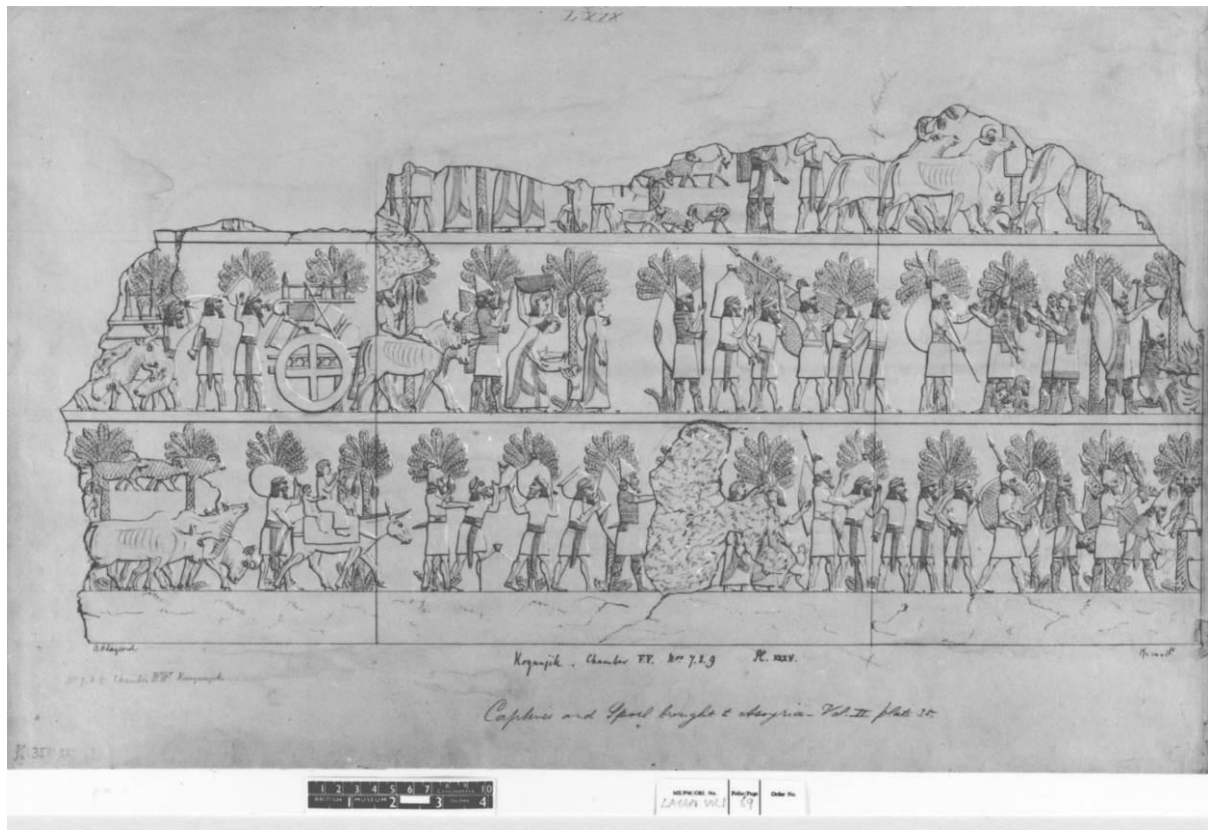 LXIX
Koyunjik. Chamber VV. Nos 7.8.9 Pl. XXXV.
Chamber Kouyunjik
Captives and Spoil brought to Assyria - Vol. II plate 35
1 2 3 4 5 6 7 10
BRITISH 1 MUSEUM 2 3 4
ME/PM/ORL No. Folio/Page Order No.
LAYARD VOL I 69